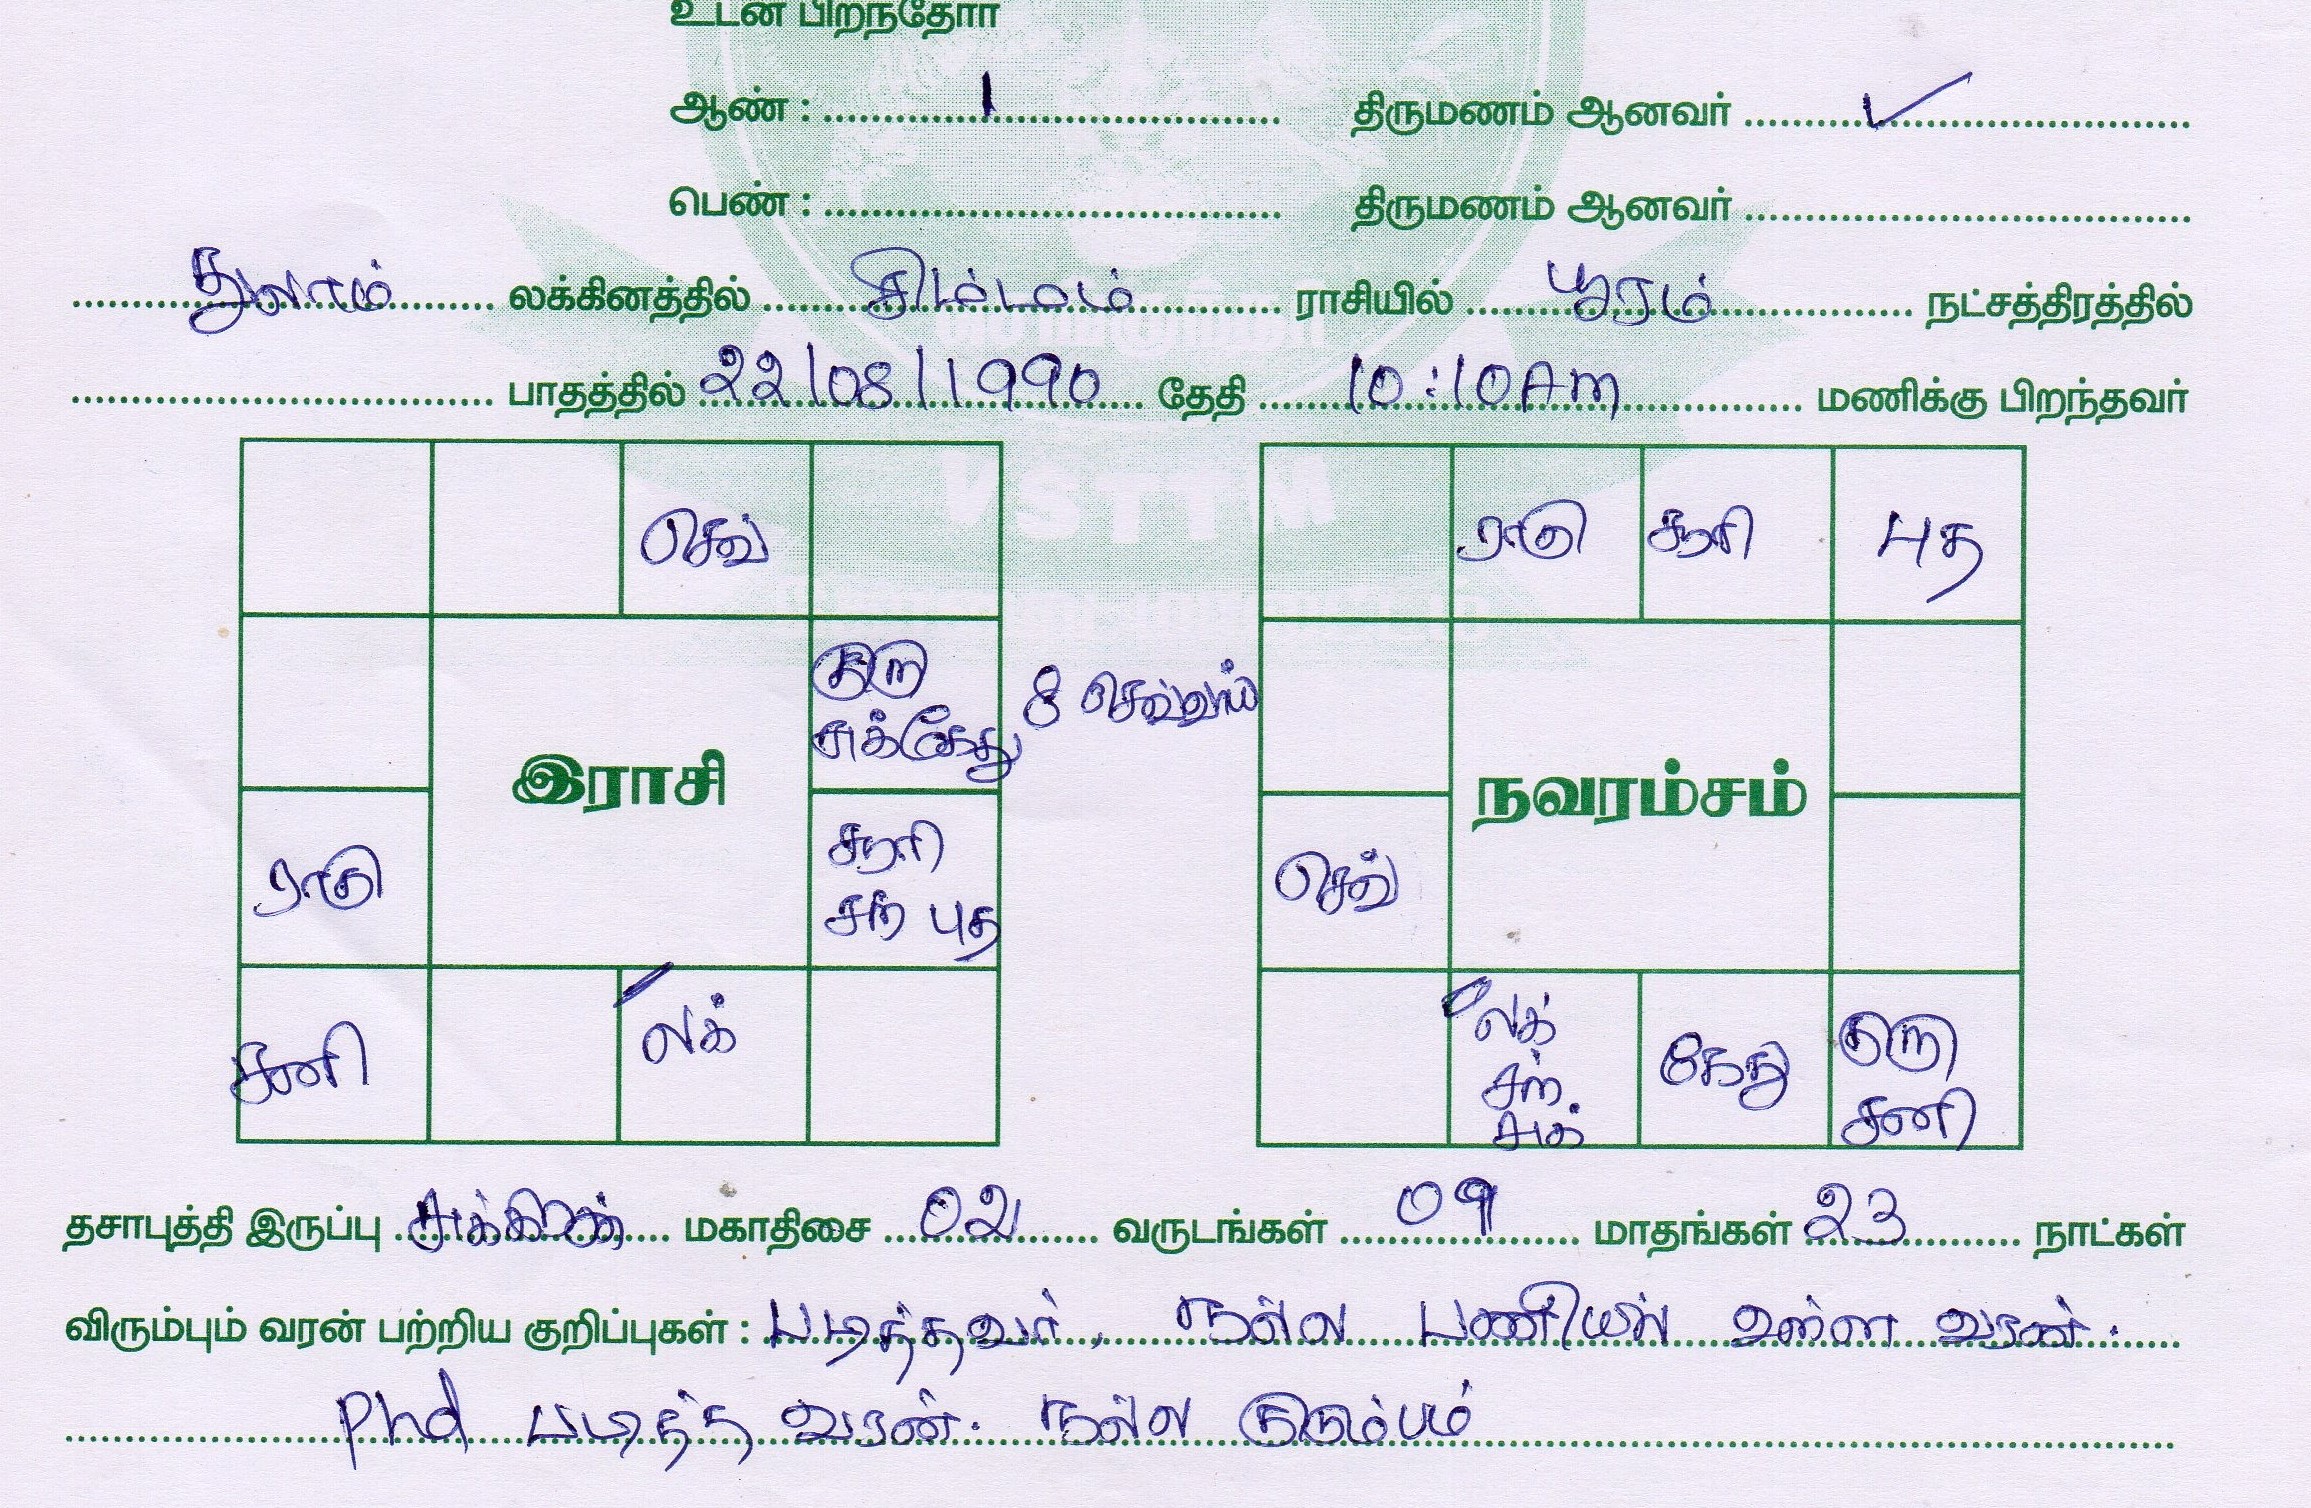 உடன் பிறந்தோர்
ஆண் : 1 திருமணம் ஆனவர் ✓
பெண் : திருமணம் ஆனவர்
துலாம் லக்கினத்தில் சிம்மம் ராசியில் பூரம் நட்சத்திரத்தில்
பாதத்தில் 22/08/1990 தேதி 10:10AM மணிக்கு பிறந்தவர்
VSTTM
செவ்
ராகு சூரி புத
குரு
சுக்கேது 8 செவ்வாய்
இராசி
நவரம்சம்
ராகு
சூரி
சந் புத
செவ்
சனி
லக்
லக்
சந்
சுக்
கேது
குரு
சனி
தசாபுத்தி இருப்பு சுக்கிரன் மகாதிசை 02 வருடங்கள் 09 மாதங்கள் 23 நாட்கள்
விரும்பும் வரன் பற்றிய குறிப்புகள் : படித்தவர், நல்ல பணியில் உள்ள வரன்.
Phd படித்த வரன். நல்ல குடும்பம்